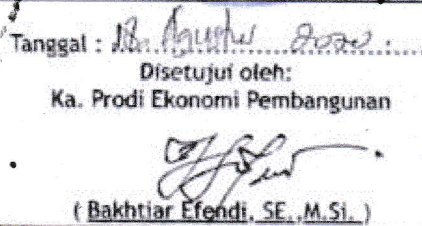 Tanggal : 18 Agustus 2020
Disetujui oleh:
Ka. Prodi Ekonomi Pembangunan
( Bakhtiar Efendi, SE.,M.Si. )